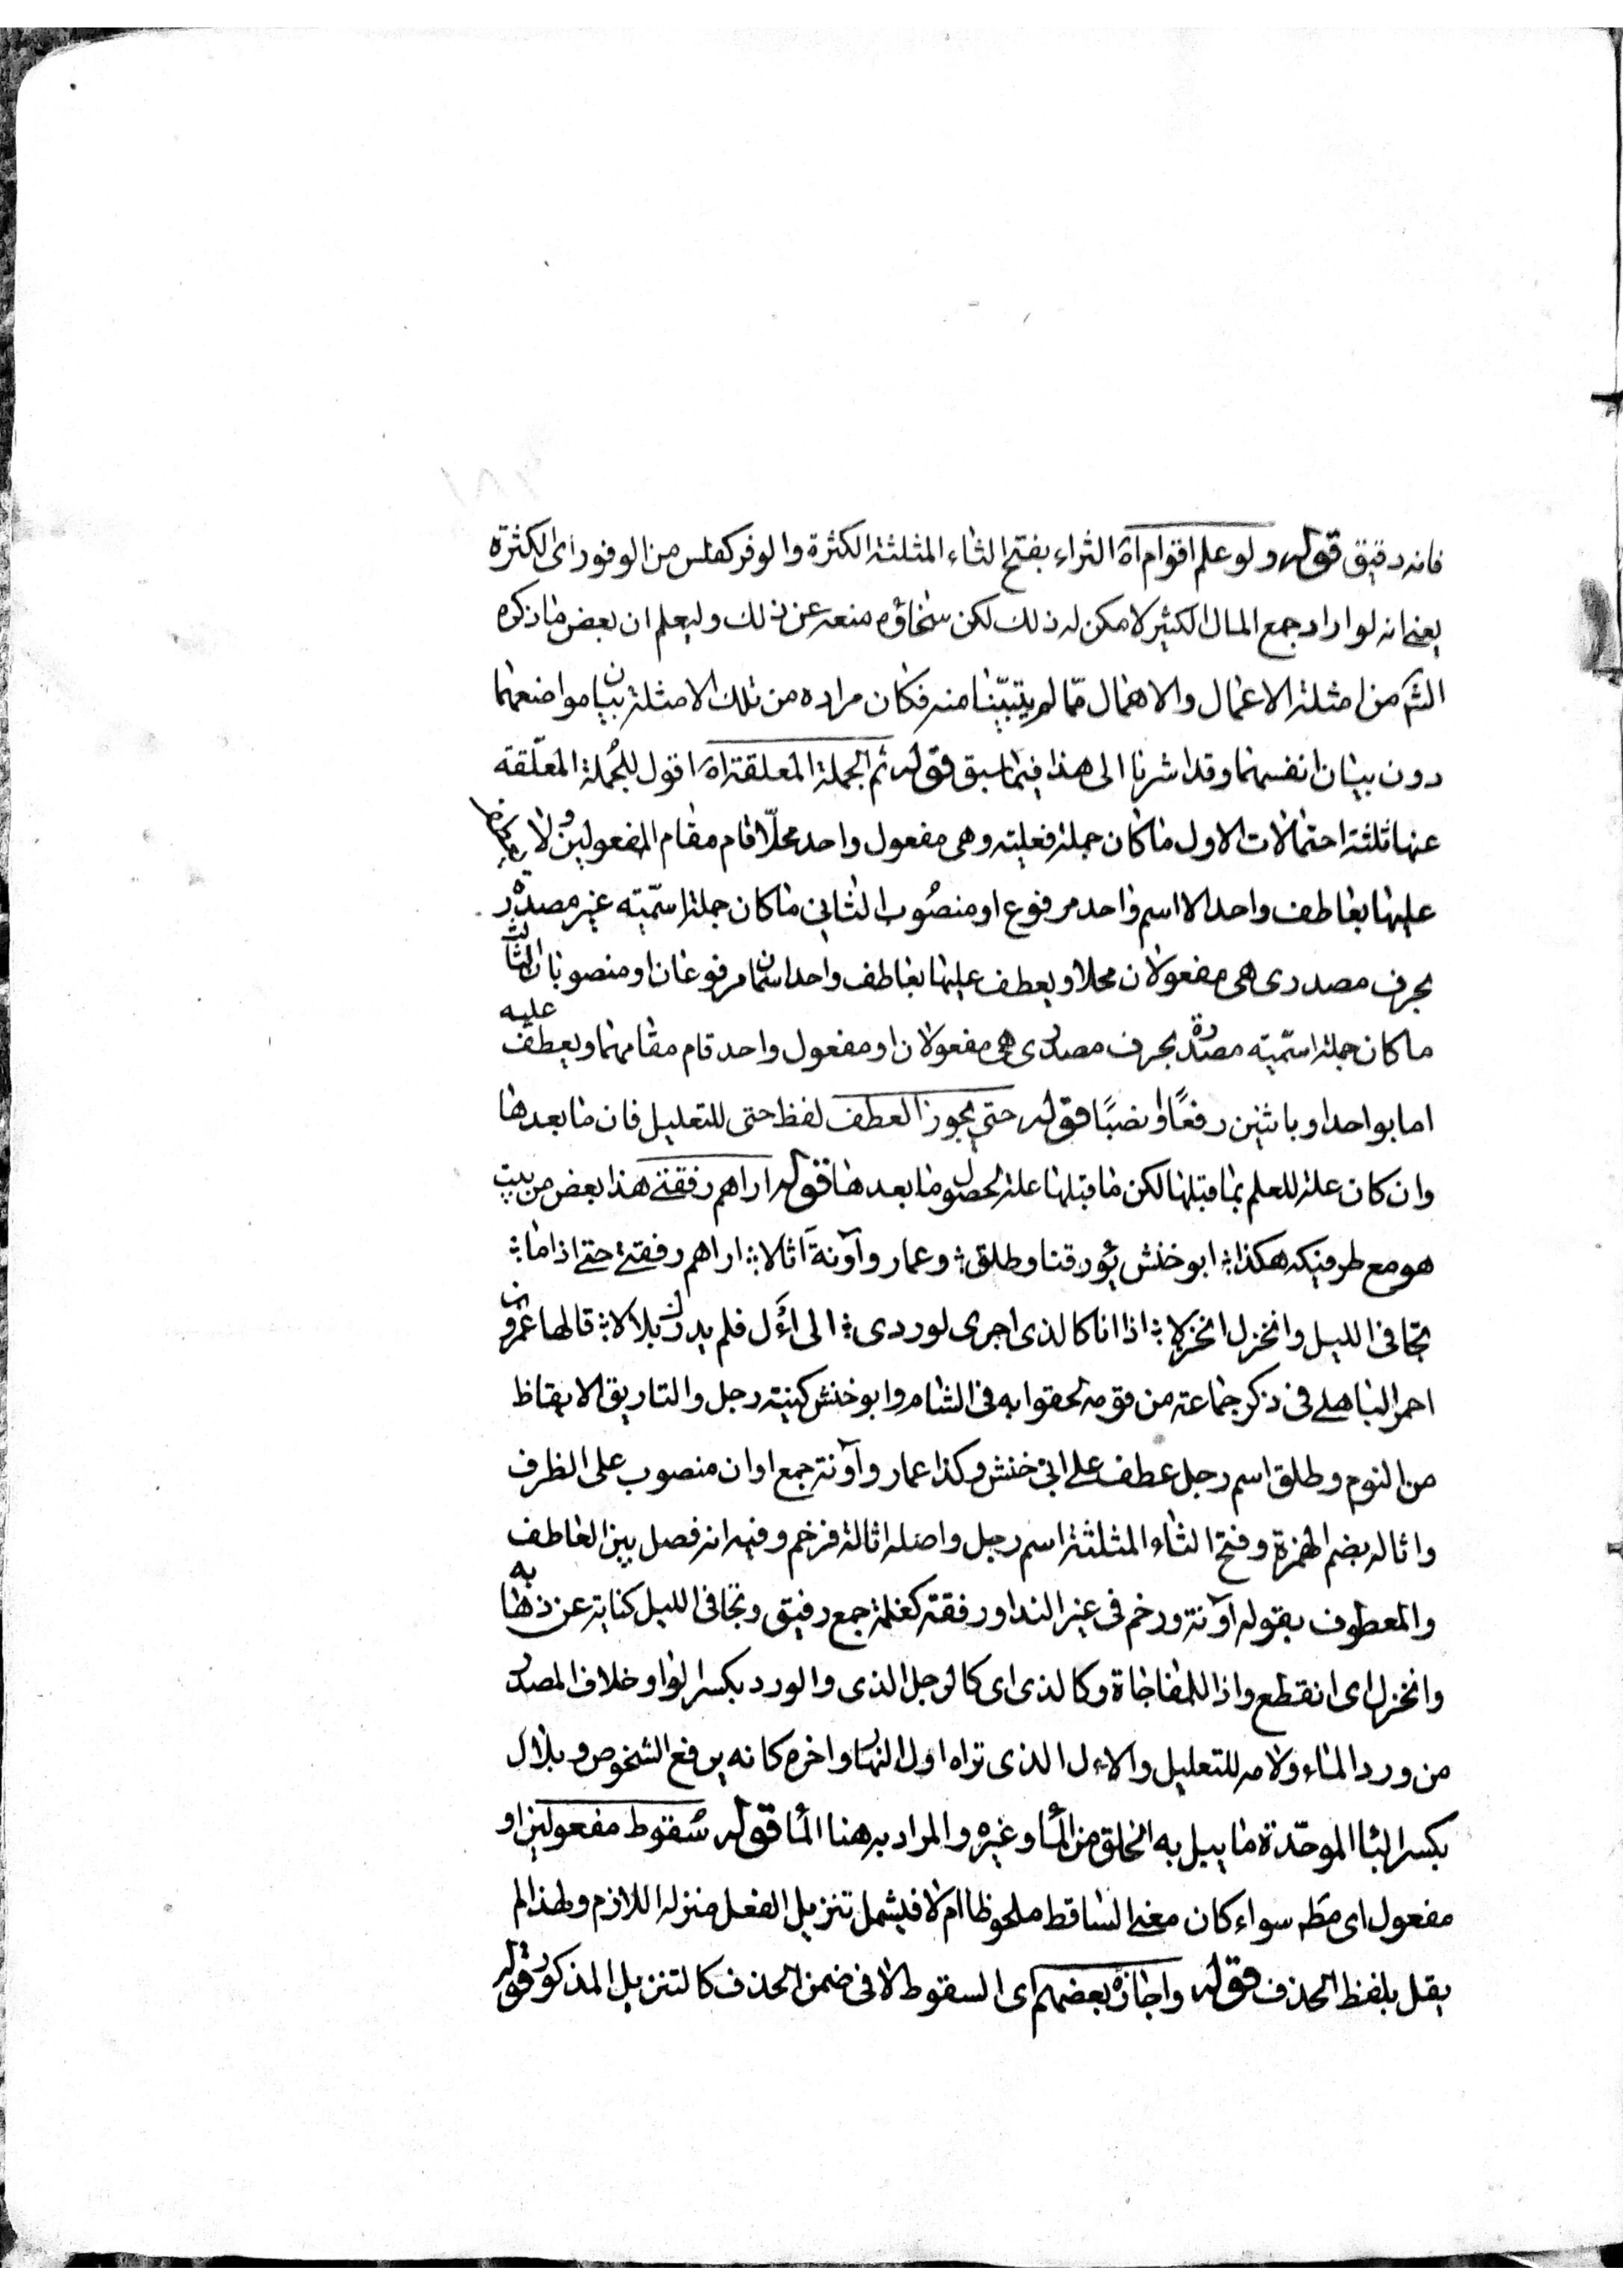 فانه دقيق قوله ولو علم اقوام اه الثراء بفتح الثاء المثلثة الكثرة والوفر كفلس من الوفور اى الكثرة
يعنى انه لو اراد جمع المال الكثير لامكن له ذلك لكن سخاؤه منعه عن ذلك وليعلم ان بعض ما ذكره
الش من امثلة الاعمال والاهمال مما لم يتبينا منه فكان مراده من تلك الامثلة بيان مواضعهما
دون بيان انفسهما وقد اشرنا الى هذا فيما سبق قوله ثم الجملة المعلقة اه اقول للجملة المعلّقة
عنها ثلثة احتمالات الاول ما كان جملة فعلية وهى مفعول واحد محلّا قام مقام المفعولين ولا يعطف
عليها بعاطف واحد الا اسم واحد مرفوع او منصوب الثانى ما كان جملة اسمّية غير مصدّرة
بحرف مصدرى هى مفعولان محلا ويعطف عليها بعاطف واحد اسمان مرفوعان او منصوبان الثالث
ما كان جملة اسمّية مصدرة بحرف مصدرى هى مفعولان او مفعول واحد قام مقامهما ويعطف عليه
اما بواحد او باثنين رفعًا او نصبًا قوله حتى يجوز العطف لفظ حتى للتعليل فان ما بعدها
وان كان علة للعلم بما قبلها لكن ما قبلها علة لحصول ما بعدها قوله اراهم رفقتى هذا بعض من بيت
هو مع طرفيه هكذا ؛ ابو خنش يؤرقنا وطلق ؛ وعمار وآونة اثالا ؛ اراهم رفقتى حتى اذا ما ؛
تجافى الليل وانخزل انخزالا ؛ اذا انا كالذى اجرى لورد ى ؛ الى اءَل فلم يدرك بلالا ؛ قالها عمرو بن
احمر الباهلى فى ذكر جماعة من قومه لحقوا به فى الشام وابو خنش كنية رجل والتاريق الايقاظ
من النوم وطلق اسم رجل عطف على ابى خنش وكذا عمار وآونة جمع اوان منصوب على الظرف
واثاله بضم الهمزة وفتح الثاء المثلثة اسم رجل واصله اثالة فرخم وفيه انه فصل بين العاطف
والمعطوف بقوله آونة ورخم فى غير الندا ورفقة كغلمة جمع رفيق وتجافى الليل كناية عن ذهابه
وانخزل اى انقطع واذا للمفاجاة وكالذى اى كالرجل الذى والورد بكسر الواو خلاف المصدر
من ورد الماء ولامه للتعليل والاءل الذى تراه اول النهار واخره كانه يرفع الشخوص وبلال
بكسر البا الموحّدة ما يبل به الحلق من الماء وغيره والمراد به هنا الماء قوله سُقوط مفعولين او
مفعول اى مطه سواء كان معنى الساقط ملحوظا ام لا فليشمل تنزيل الفعل منزلة اللازم ولهذا لم
يقل بلفظ الحذف قوله واجازه بعضهم اى السقوط لا فى ضمن الحذف كالتنزيل المذكور قوله